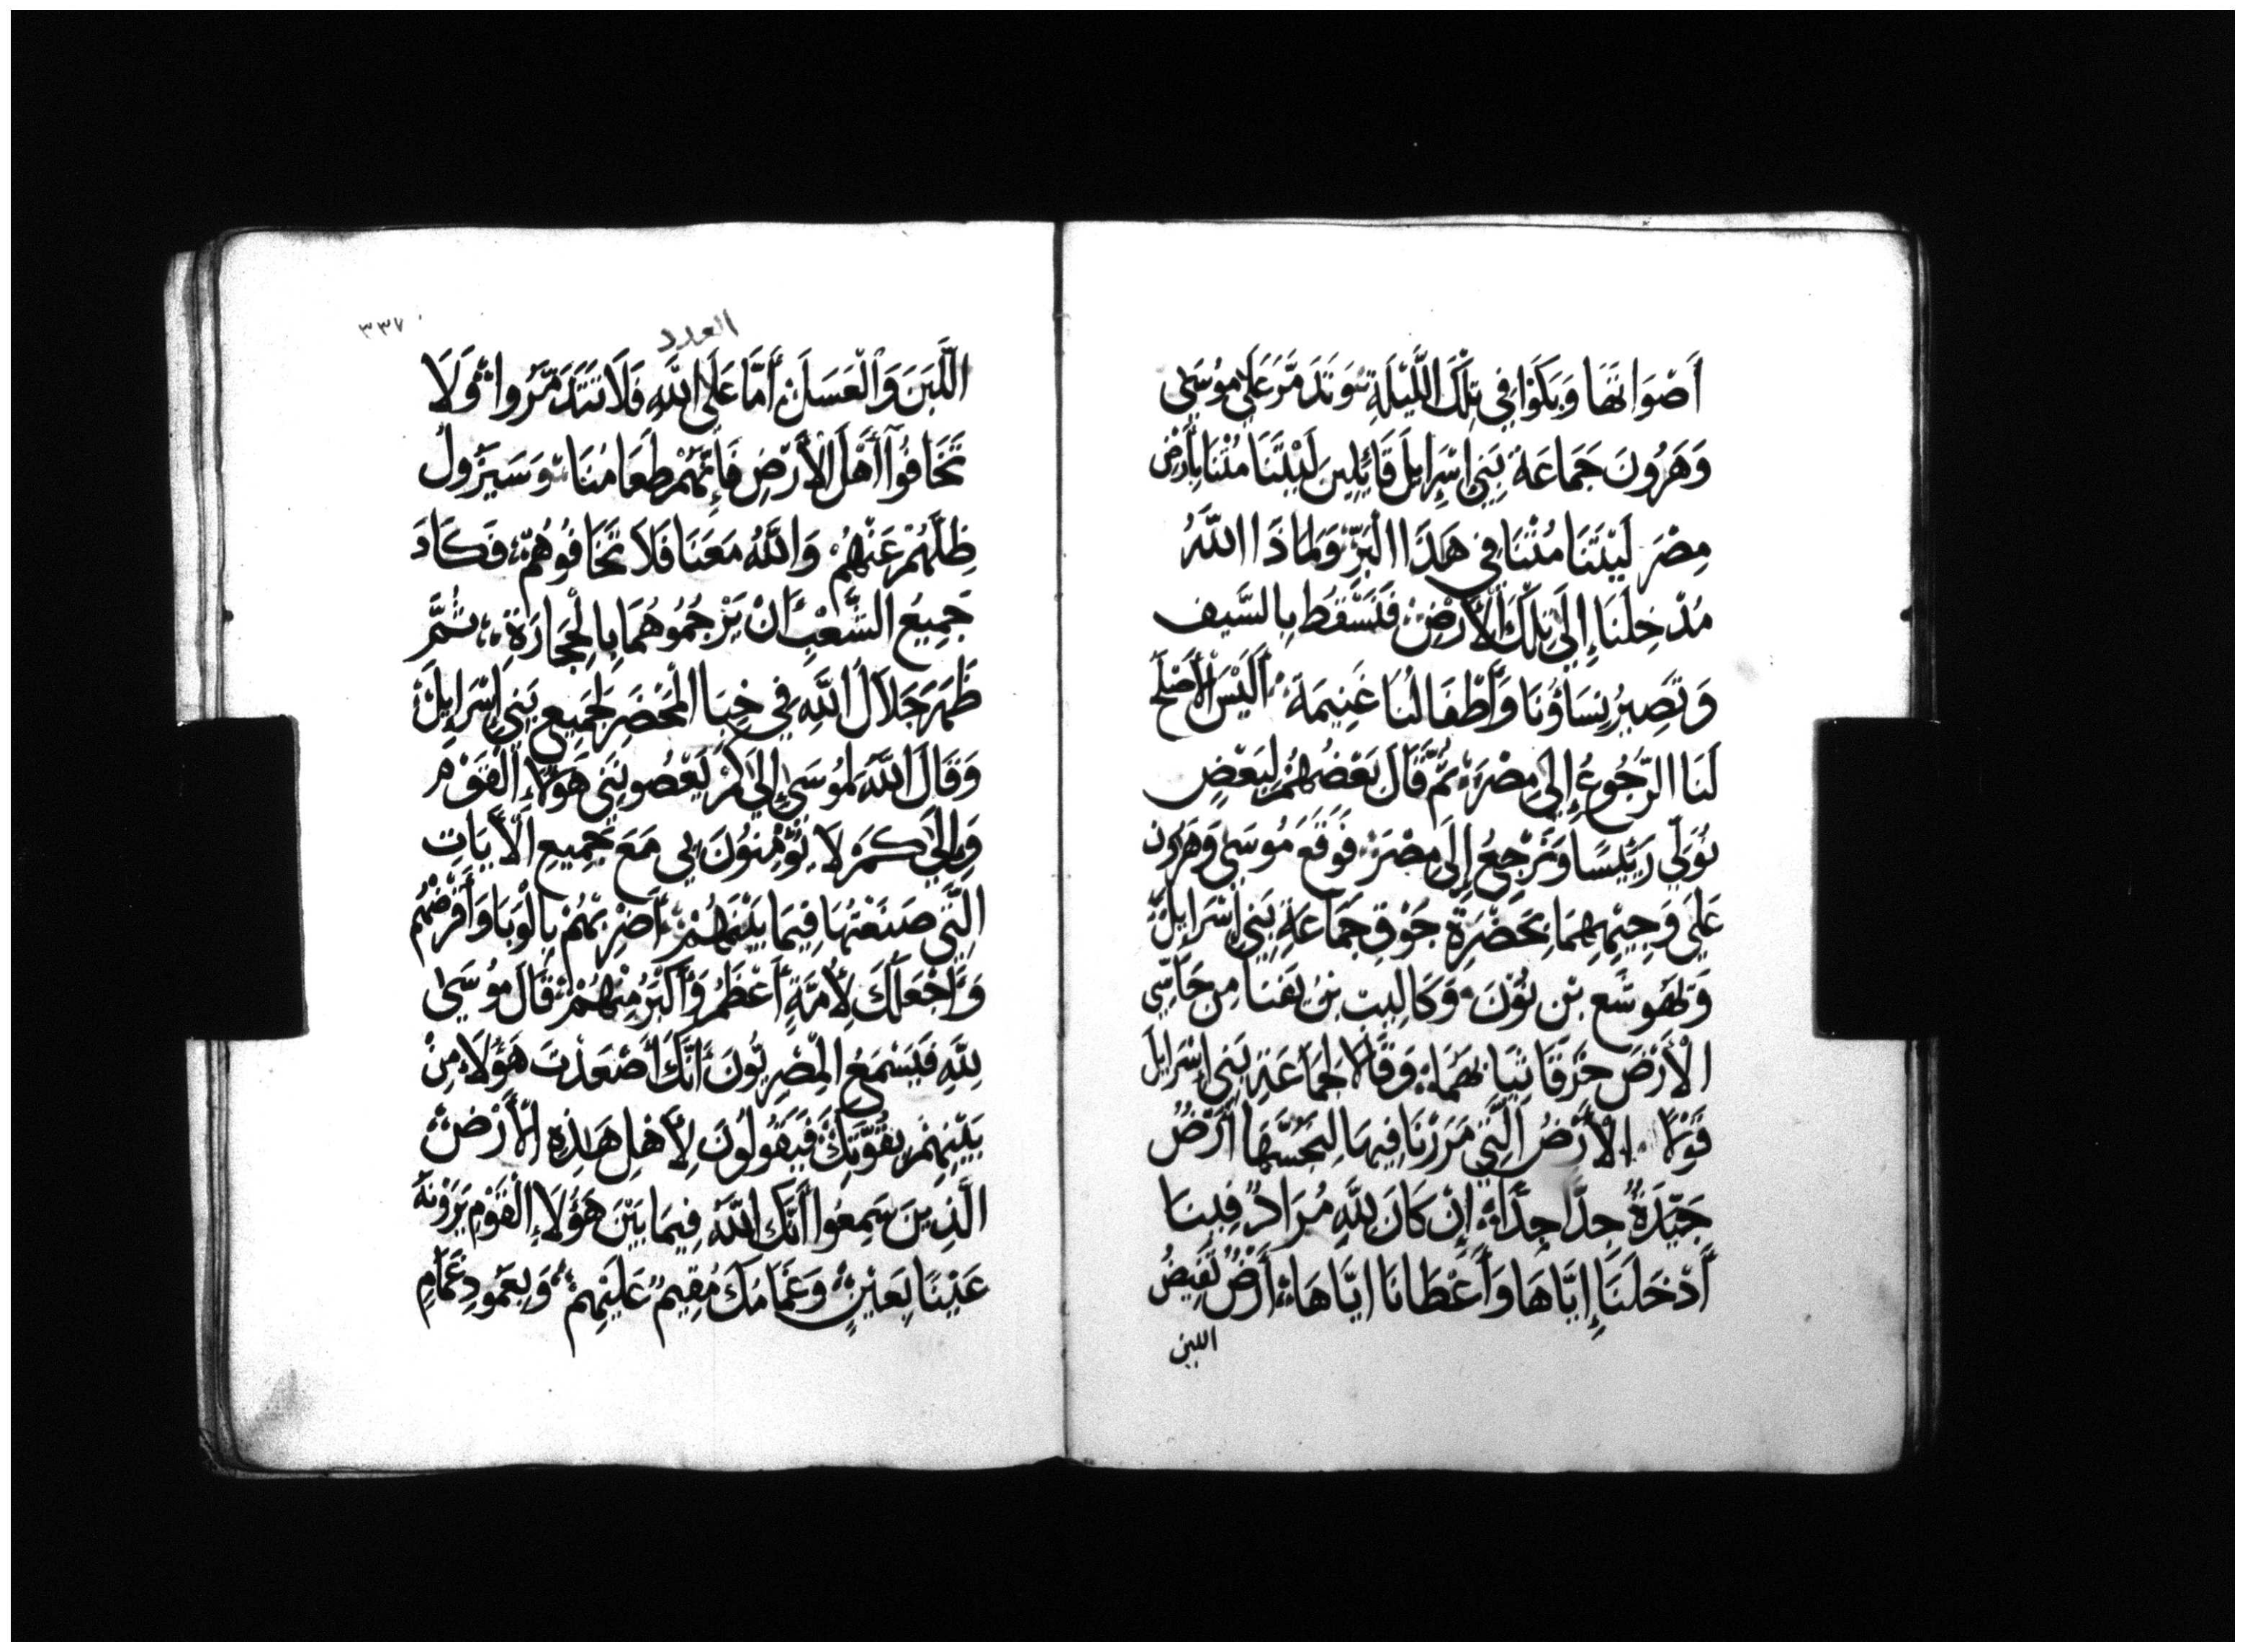 أَصْوَاتَهَا وَبَكَوْا فِي تِلْكَ اللَّيْلَةِ وَتَدَمَّرَ عَلَى مُوسَى
وَهَرُونَ جَمَاعَةُ بَنِي إِسْرَايِلَ قَائِلِينَ لَيْتَنَا مُتْنَا بِأَرْضِ
مِصْرَ لَيْتَنَا مُتْنَا فِي هَذَا البَرِّ وَلِمَاذَا اللَّهُ
مُدْخِلُنَا إِلَى تِلْكَ الْأَرْضِ فَنَسْقُطُ بِالسَّيفِ
وَتَصِيرُ نِسَاؤُنَا وَأَطْفَالُنَا غَنِيمَةً أَلَيْسَ الْأَصْلَحُ
لَنَا الرُّجُوعُ إِلَى مِصْرَ ثُمَّ قَالَ بَعْضُهُمْ لِبَعْضٍ
نُوَلِّي رَئِيسًا وَنَرْجِعُ إِلَى مِصْرَ فَوَقَعَ مُوسَى وَهَرُونَ
عَلَى وَجْهَيْهِمَا بِحَضْرَةِ جَوْقِ جَمَاعَةِ بَنِي إِسْرَايِلَ
وَيَهُوشَع بْن نُوْنَ وَكَالِيب بْن يَفَنَا مِن جَاسِّي
الْأَرْضَ خَرَقَا ثِيَابَهُمَا وَقَالَا لِجَمَاعَةِ بَنِي إِسْرَايِلَ
قَوْلًا الْأَرْضُ الَّتِي مَرَرْنَا فِيهَا لِنَجُسَّهَا أَرْضٌ
جَيِّدَةٌ جِدًّا جِدًّا إِنْ كَانَ لِلَّهِ مُرَادٌ فِينَا
أَدْخَلَنَا إِيَّاهَا وَأَعْطَانَا ايَّاهَا أَرْضٌ تَفِيضُ
اللبن
العدد
٣٣٧
اللَّبَنَ وَالْعَسَلَ أَمَّا عَلَى اللَّهِ فَلَا تَتَدَمَّرُوا وَلَا
تَخَافُوا أَهْلَ الْأَرْضِ فَإِنَّهُمْ طَعَامُنَا وَسَيَزُولُ
ظِلُّهُمْ عَنْهُمْ وَاللَّهُ مَعَنَا فَلَا تَخَافُوهُمْ فَكَادَ
جَمِيعُ الشَّعْبِ أَنْ يَرْجُمُوهُمَا بِالْحِجَارَةِ ثُمَّ
ظَهَرَ جَلَالُ اللَّهِ فِي خِبَا الْمَحْضَرِ لِجَمِيعِ بَنِي إِسْرَايِلَ
وَقَالَ اللَّهُ لِمُوسَى إِلَى كَمْ يَعْصُونَنِي هَؤُلَاءِ الْقَوْمِ
وَإِلَى كَمْ لَا يُؤْمِنُونَ بِي مَعَ جَمِيعِ الْآيَاتِ
الَّتِي صَنَعْتُهَا فِيمَا بَيْنَهُمْ أَضْرِبُهُمْ بِالْوَبَا وَأَقْرِضُهُم
وَأَجْعَلُكَ لِأُمَّةٍ أَعْظَمُ وَأَكْبَرُ مِنْهُمْ قَالَ مُوسَى
لِلَّهِ فَيَسْمَعُ الْمِصْرِيُّونَ أَنَّكَ أَصْعَدْتَ هَؤُلَاءِ مِنْ
بَيْنِهِمْ بِقُوَّتِكَ فَيَقُولُونَ لِأَهْلِ هَذِهِ الْأَرْضِ
الَّذِينَ سَمِعُوا أَنَّكَ اللَّهُ فِيمَا بَيْنَ هَؤُلَاءِ الْقَوْمِ يَرَوْنَهُ
عَيْنًا بِعَيْنٍ وَغَمَامُكَ مُقِيمٌ عَلَيْهِمْ وَبِعَمُودِ غَمَامٍ